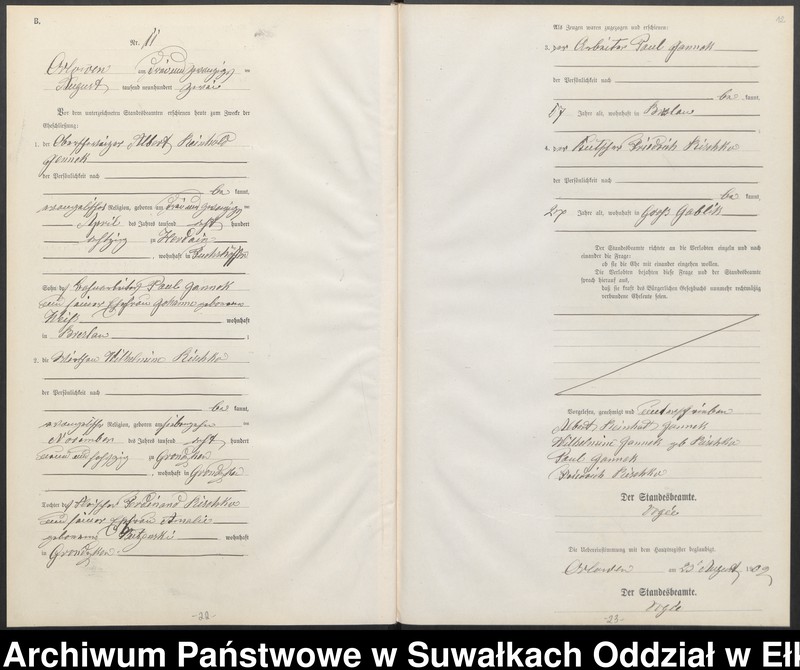 B.
Nr. 11
Orlowen am Dreiundzwanzigsten
August tausend neunhundert zwei
Vor dem unterzeichneten Standesbeamten erschienen heute zum Zwecke der
Eheschließung:
1. der Oberschweizer Albert Reinhold
Jannek
der Persönlichkeit nach
be kannt,
evangelischer Religion, geboren am Dreiundzwanzigsten
April des Jahres tausend acht hundert
achtzig zu
, wohnhaft in
Sohn des Paul Jannek
und seiner Ehefrau geborenen
Weiß wohnhaft
in Breslau ;
2. die Wilhelmine Kischko
der Persönlichkeit nach
be kannt,
evangelischer Religion, geboren am siebzehnten
November des Jahres tausend acht hundert
neun und siebzig zu Grondzken
, wohnhaft in Grondzken
Tochter des Ferdinand Kischko
und seiner Ehefrau Amalie
geborenen wohnhaft
in Grondzken
-22-
12.
Als Zeugen waren zugezogen und erschienen:
3. der Arbeiter Paul Jannek
der Persönlichkeit nach
be kannt,
57 Jahre alt, wohnhaft in Breslau
;
4. der Kutscher Friedrich Kischko
der Persönlichkeit nach
be kannt,
27 Jahre alt, wohnhaft in Groß Gablik
Der Standesbeamte richtete an die Verlobten einzeln und nach
einander die Frage:
ob sie die Ehe mit einander eingehen wollen.
Die Verlobten bejahten diese Frage und der Standesbeamte
sprach hierauf aus,
daß sie kraft des Bürgerlichen Gesetzbuchs nunmehr rechtmäßig
verbundene Eheleute seien.
Vorgelesen, genehmigt und unterschrieben
Albert Reinhold Jannek
Wilhelmine Jannek geb Kischko
Paul Jannek
Friedrich Kischko
Der Standesbeamte.
Die Uebereinstimmung mit dem Hauptregister beglaubigt.
Orlowen am 23 August 190
Der Standesbeamte.
-23-
Archiwum Państwowe w Suwałkach Oddział w Eł